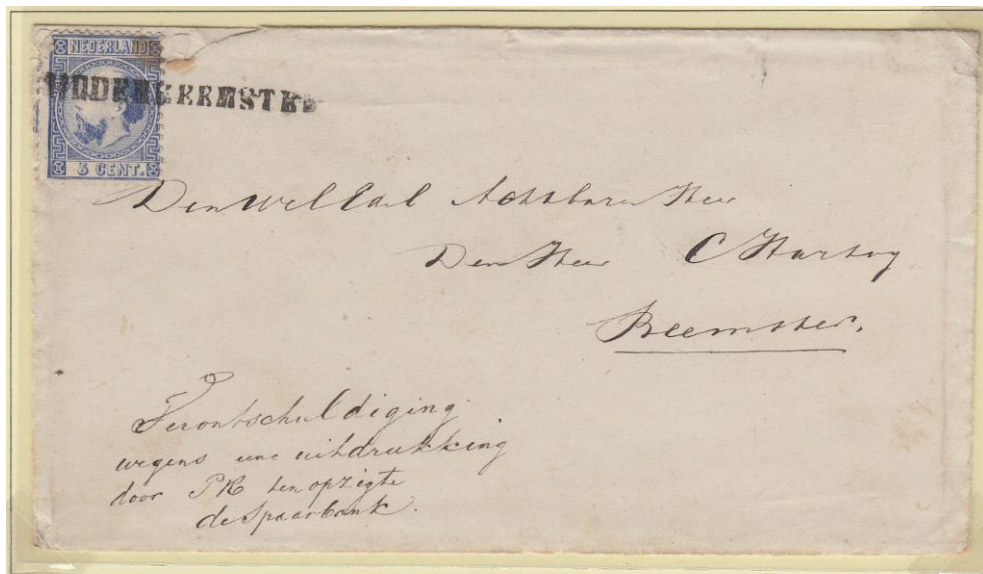 NEDERLAND
MIDDENBEEMSTER
5 CENT.
Den Wel Edel Achtbaren Heer
Den Heer C Hartog
Beemster.
Verontschuldiging
wegens eene uitdrukking
door PK ten opzigte
de Spaarbank.